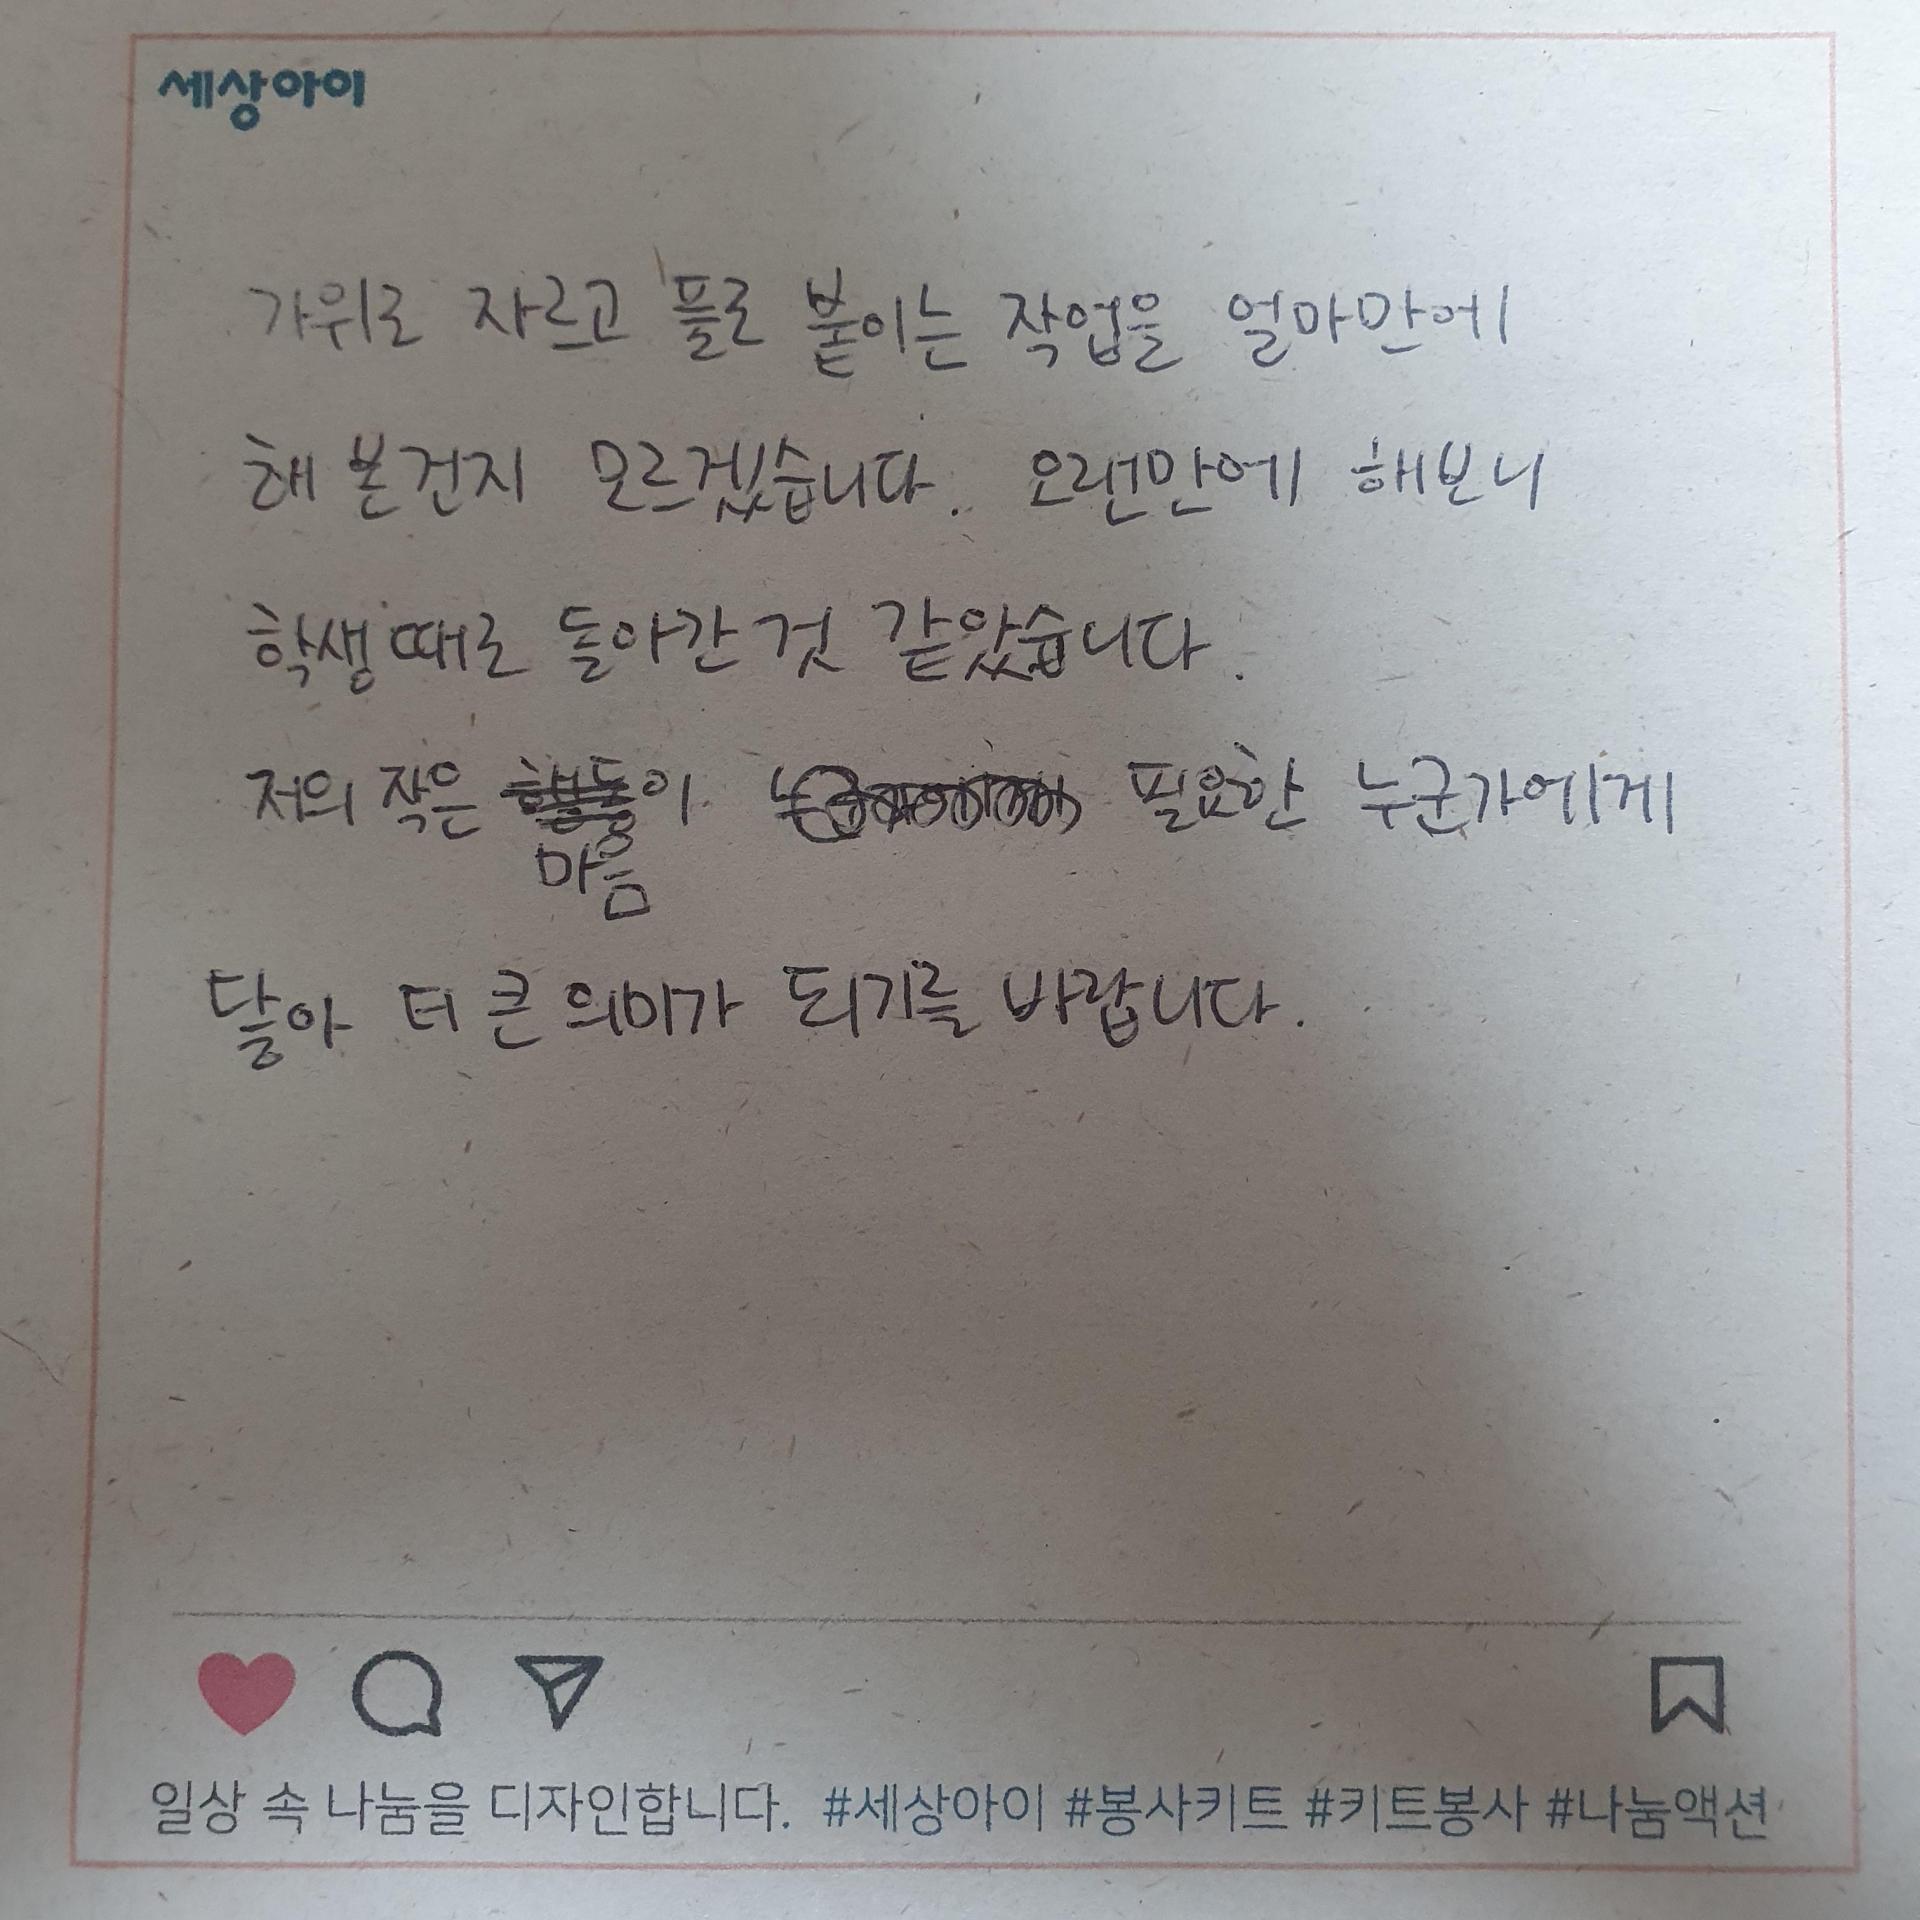 세상아이
가위로 자르고 플로 붙이는 작업을 얼마만에
해 본건지 모르겠습니다. 오랜만에 해보니
학생때로 돌아간 것 같았습니다.
저의 작은 행동이 필요한 누군가에게
마음
닿아 더 큰 의미가 되기를 바랍니다.
일상 속 나눔을 디자인합니다. #세상아이 #봉사키트 #키트봉사 #나눔액션